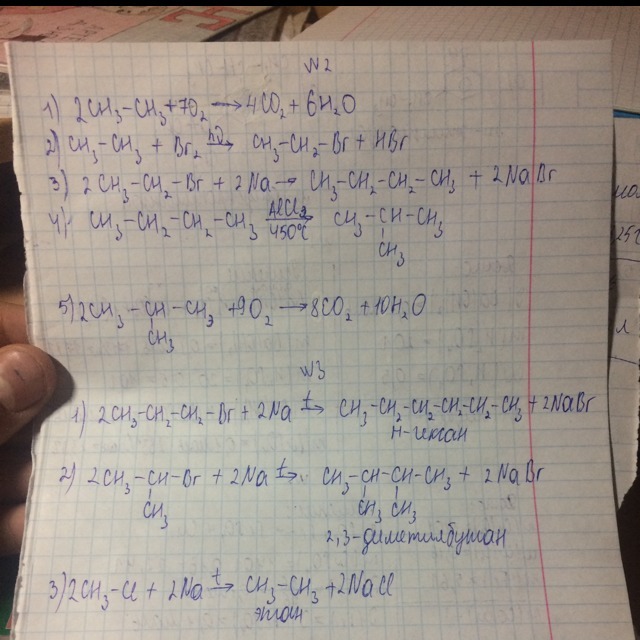 №2
1) 2CH₃-CH₃+7O₂ → 4CO₂ + 6H₂O
2) CH₃-CH₃ + Br₂ hν→ CH₃-CH₂-Br + HBr
3) 2CH₃-CH₂-Br + 2Na → CH₃-CH₂-CH₂-CH₃ + 2NaBr
4) CH₃-CH₂-CH₂-CH₃ AlCl₃→ CH₃-CH-CH₃
450°C
CH₃
5) 2CH₃ - CH - CH₃ +9O₂ → 8CO₂ + 10H₂O
CH₃
№3
1) 2CH₃-CH₂-CH₂-Br + 2Na t→ CH₃-CH₂-CH₂-CH₂-CH₂-CH₃ + 2NaBr
н-гексан
2) 2CH₃-CH-Br + 2Na t→ CH₃-CH-CH-CH₃ + 2NaBr
CH₃ CH₃ CH₃
2,3-диметилбутан
3) 2CH₃-Cl + 2Na t→ CH₃-CH₃ +2NaCl
этан